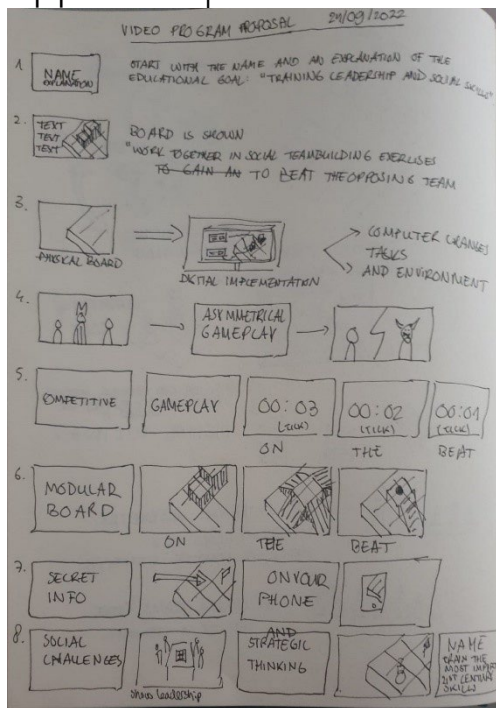 VIDEO PROGRAM PROPOSAL 29/09/2022
1. NAME
EXPLANATION
START WITH THE NAME AND AN EXPLANATION OF THE
EDUCATIONAL GOAL: "TRAINING LEADERSHIP AND SOCIAL SKILLS"
2. TEXT
TEXT
TEXT
BOARD IS SHOWN
"WORK TOGETHER IN SOCIAL TEAMBUILDING EXERCISES
TO GAIN AN TO BEAT THE OPPOSING TEAM
3.
PHYSICAL BOARD
DIGITAL IMPLEMENTATION
COMPUTER CHANGES
TASKS
AND ENVIRONMENT
4.
ASYMMETRICAL
GAMEPLAY
5.
COMPETITIVE
GAMEPLAY
00:03
(TICK)
00:02
(TICK)
00:01
(TICK)
ON THE BEAT
6.
MODULAR
BOARD
ON THE BEAT
7.
SECRET
INFO
ON YOUR
PHONE
AND
8.
SOCIAL
CHALLENGES
show leadership
STRATEGIC
THINKING
NAME
TRAIN THE
MOST IMPORT
21ST CENTURY
SKILLS